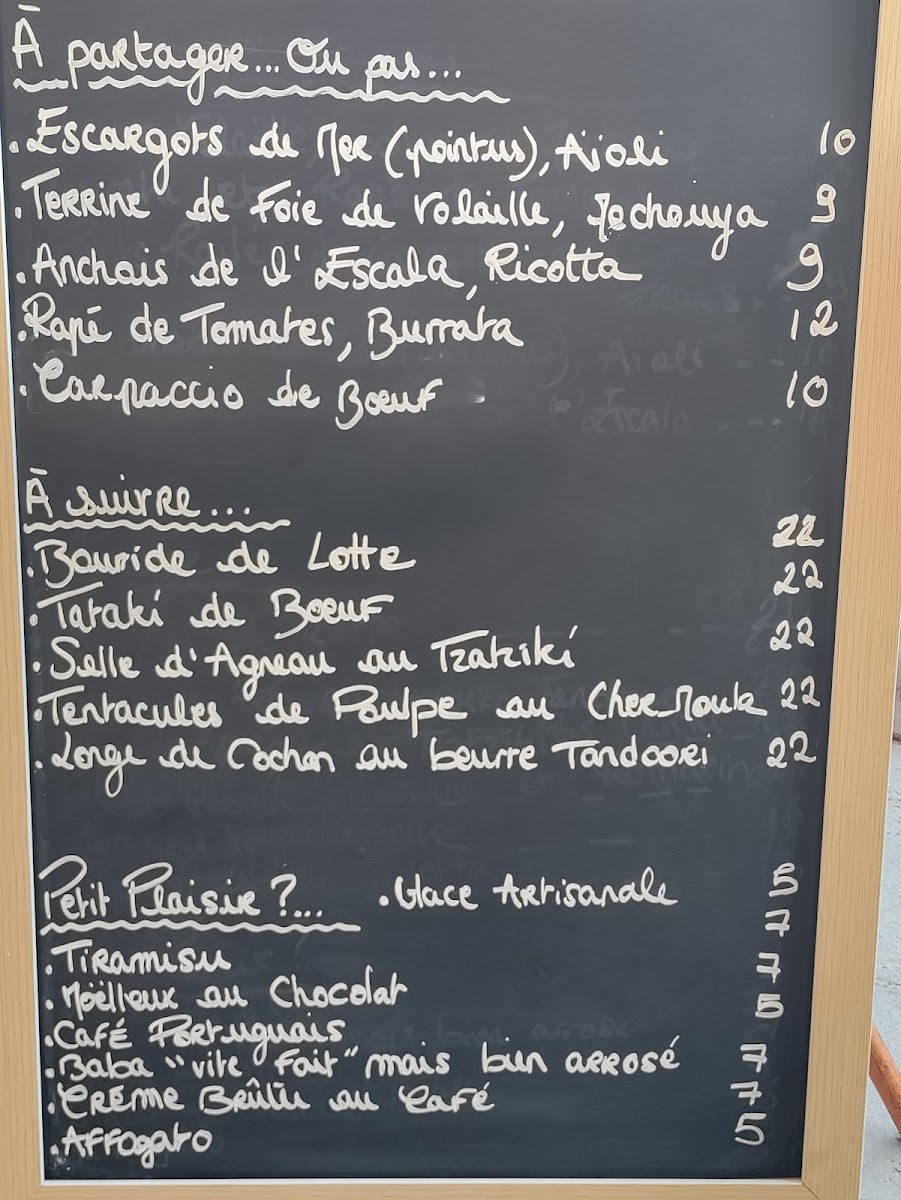 À partager... Ou pas...
. Escargots de Mer (pointus), Aïoli 10
. Terrine de Foie de Volaille, Techouya 9
. Anchois de l'Escala, Ricotta 9
. Rapé de Tomates, Burrata 12
. Carpaccio de Boeuf 10
À suivre...
. Bourride de Lotte 22
. Tataki de Boeuf 22
. Selle d'Agneau au Tzatziki 22
. Tentacules de Poulpe au Chermoula 22
. Longe de Cochon au beurre Tandoori 22
Petit Plaisir ?... . Glace Artisanale 5
. Tiramisu 7
. Moëlleux au Chocolat 7
. Café Portuguais 5
. Baba "vite fait" mais bien arrosé 7
. Crème Brûlée au Café 7
. Affogato 5